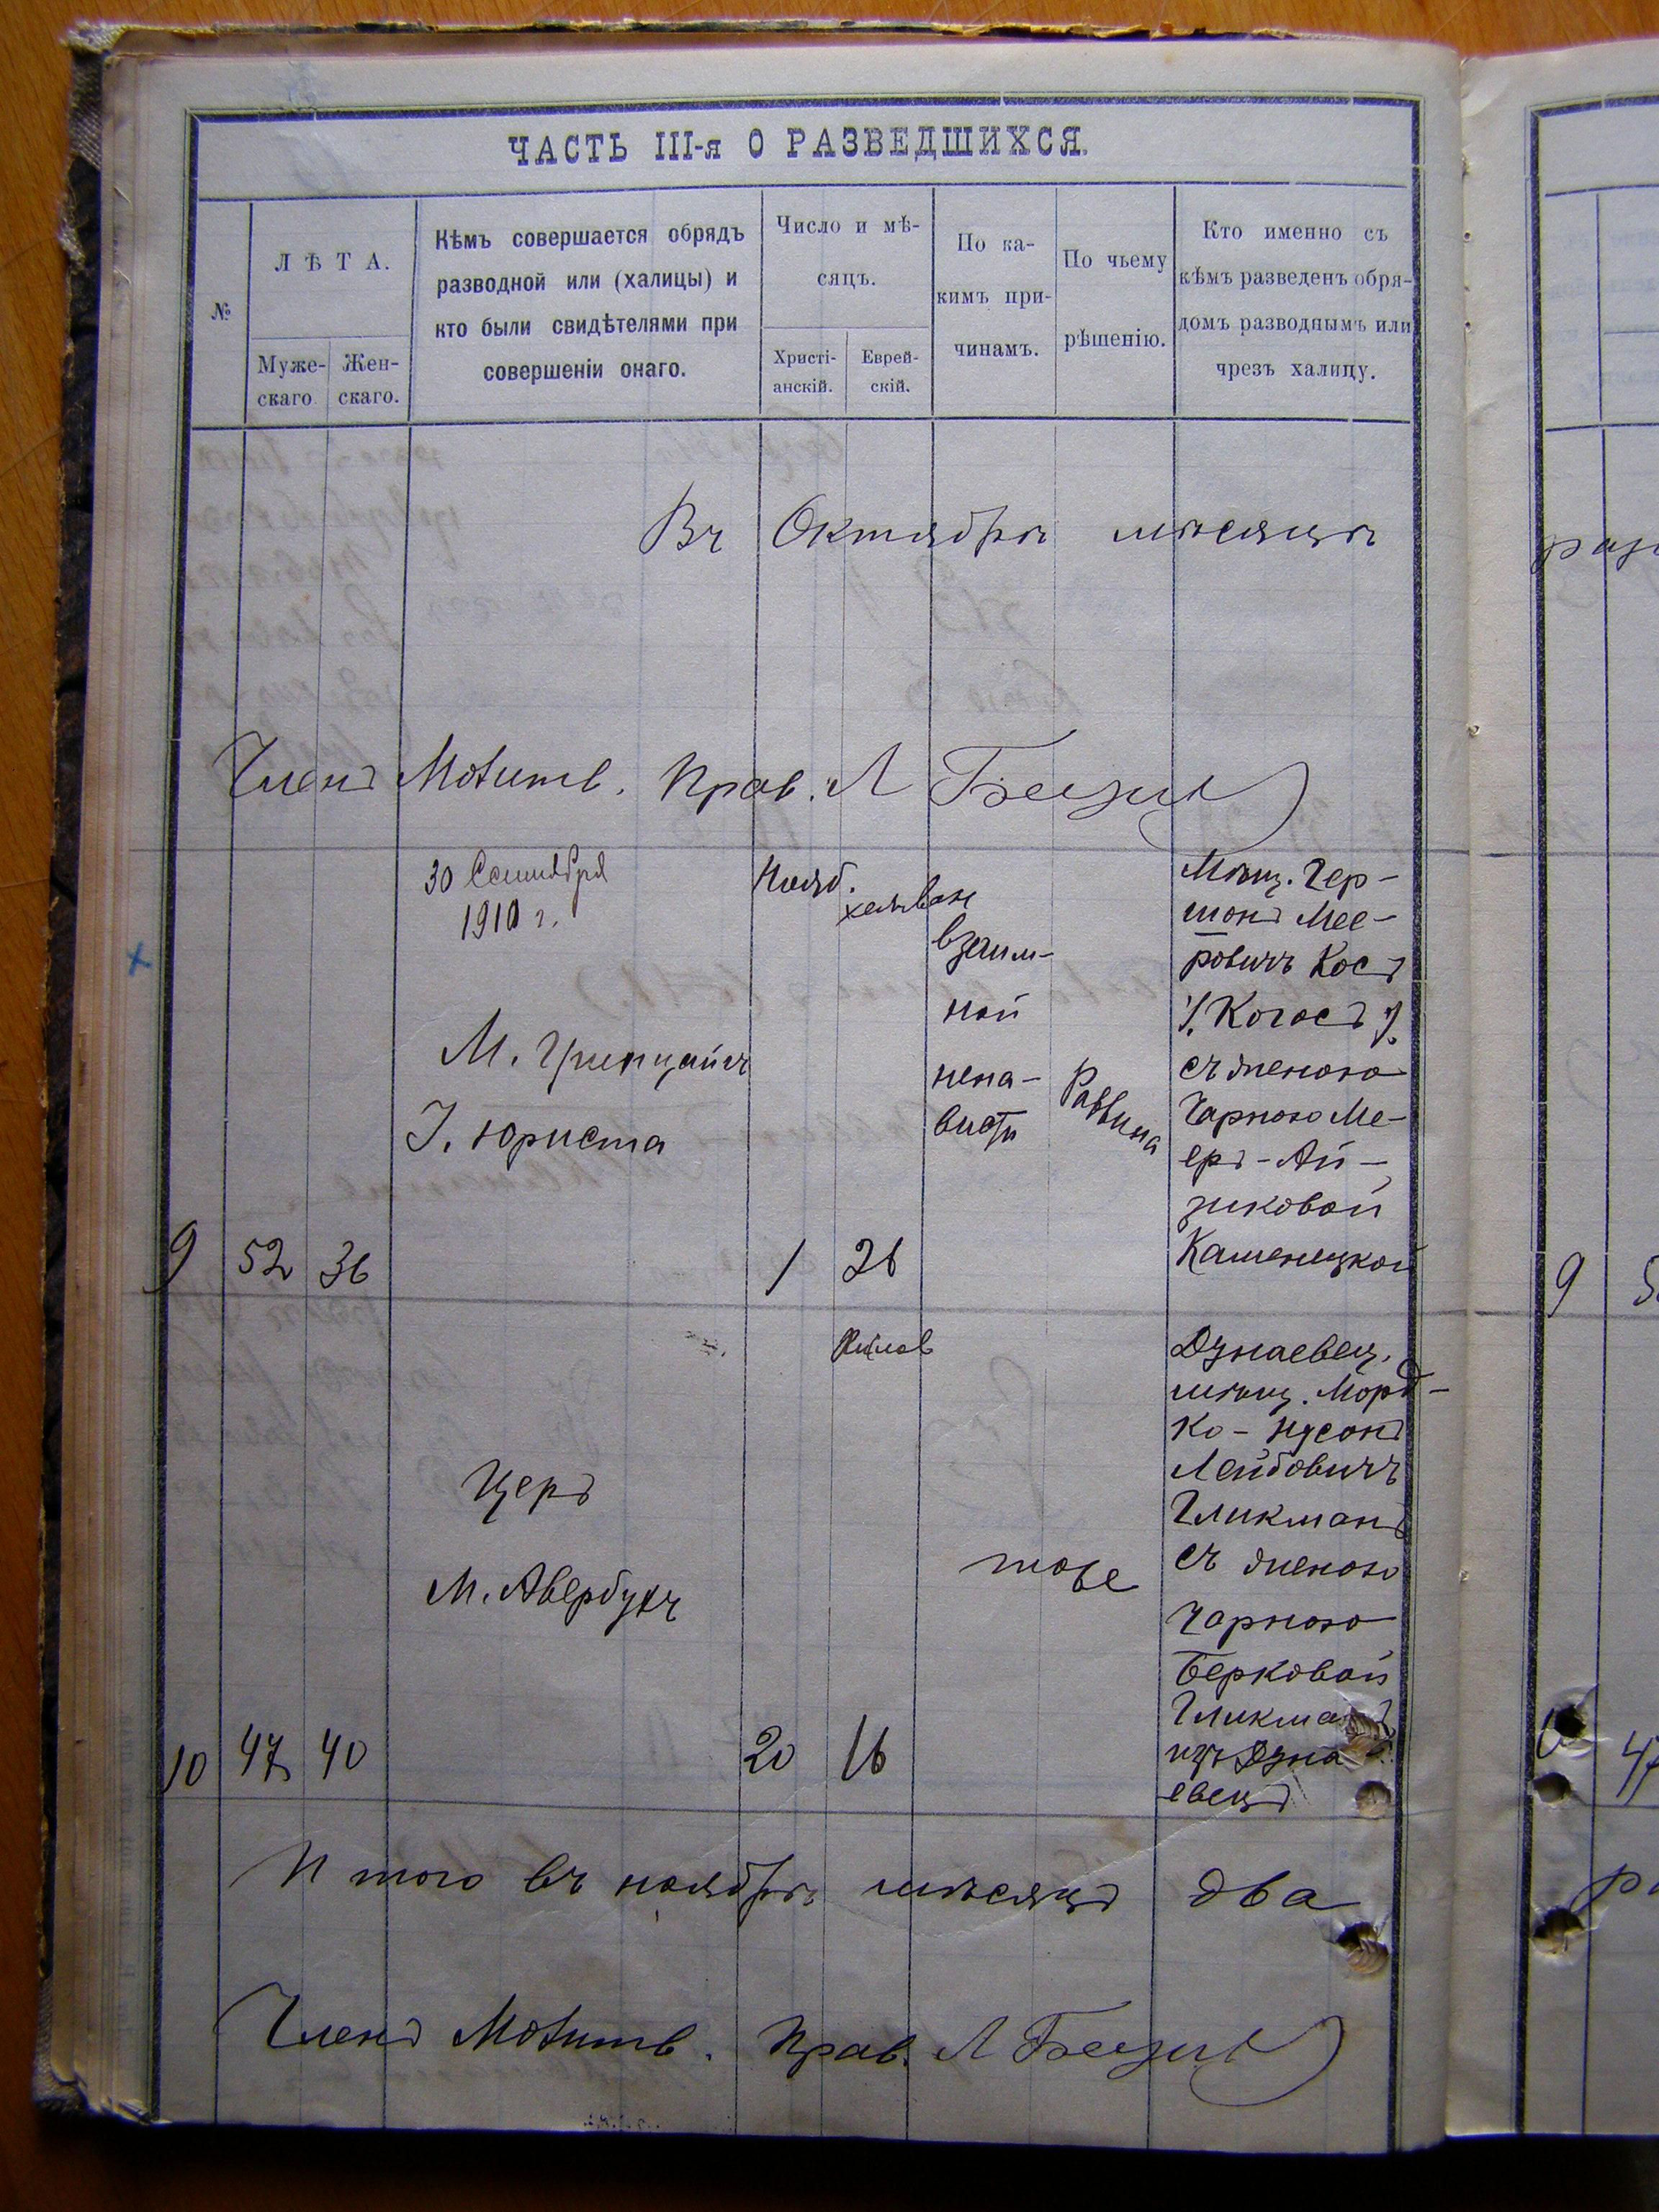 ЧАСТЬ III-я О РАЗВЕДШИХСЯ.
№
ЛѢТА.
Муже-
скаго
Жен-
скаго.
Кѣмъ совершается обрядъ
разводной или (халицы) и
кто были свидѣтелями при
совершеніи онаго.
Число и мѣ-
сяцъ.
Христі-
анскій.
Еврей-
скій.
По ка-
кимъ при-
чинамъ.
По чьему
рѣшенію.
Кто именно съ
кѣмъ разведенъ обря-
домъ разводнымъ или
чрезъ халицу.
Въ Октябрѣ мѣсяцѣ
Членъ Молитв. Прав. Л
30 Сентября
1910 г.
М.
І. Юриста
Нояб.
хешван
взаим-
ной
нена-
висти
Раввина
Мѣщ. Гер-
шонъ Мее-
ровичъ Косъ
/. Когосъ /.
съ женою
Чарною Ме-
еръ-Ай-
зиковой
Каменецкой
9 52 36 1 26
Кислев
Церъ
М. Авербухъ
тоже
Дунаевец.
мѣщ. Морд-
ко-Нусонъ
Лейбовичъ
Гликманъ
съ женою
Чарною
Берковой
Гликманъ
изъ Дуна
евецъ
10 47 40 20 16
Итого въ ноябрѣ мѣсяцѣ два
Членъ Молитв. Прав. Л
9